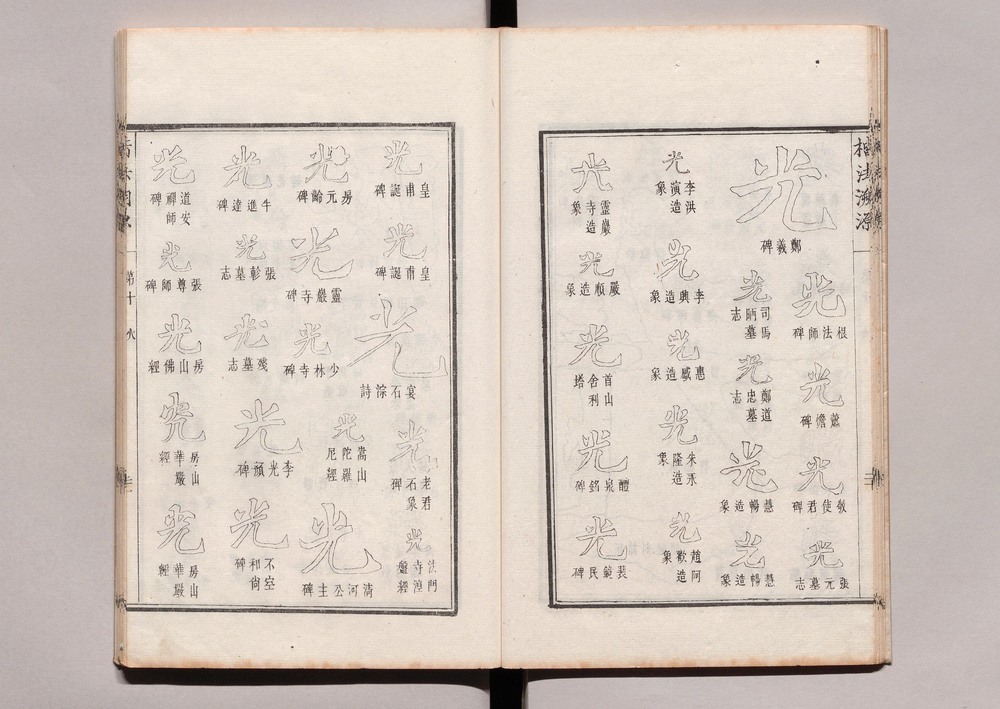 楷法溯源
光
鄭羲碑
光
根法師碑
光
蕭憺碑
光
敬使君碑
光
張元墓志
光
司馬昞墓志
光
鄭道忠墓志
光
慧暢造象
光
慧暢造象
光
李洪演造象
光
李興造象
光
惠感造象
光
朱永隆造象
光
趙阿歡造象
光
靈巖寺造象
光
嚴順造象
光
首山舍利塔
光
醴泉銘碑
光
裴範民碑
光
皇甫誕碑
光
皇甫誕碑
光
宴石淙詩
光
老君石象碑
光
法門寺盤經
光
房元齡碑
光
靈巖寺碑
光
少林寺碑
光
嵩山陀羅尼經
光
清河公主碑
光
牛進達碑
光
張彰墓志
光
殘墓志
光
李光顏碑
光
不空和尚碑
光
道安禪師碑
光
張尊師碑
光
房山佛經
光
房山華嚴經
光
房山華嚴經
第十
火